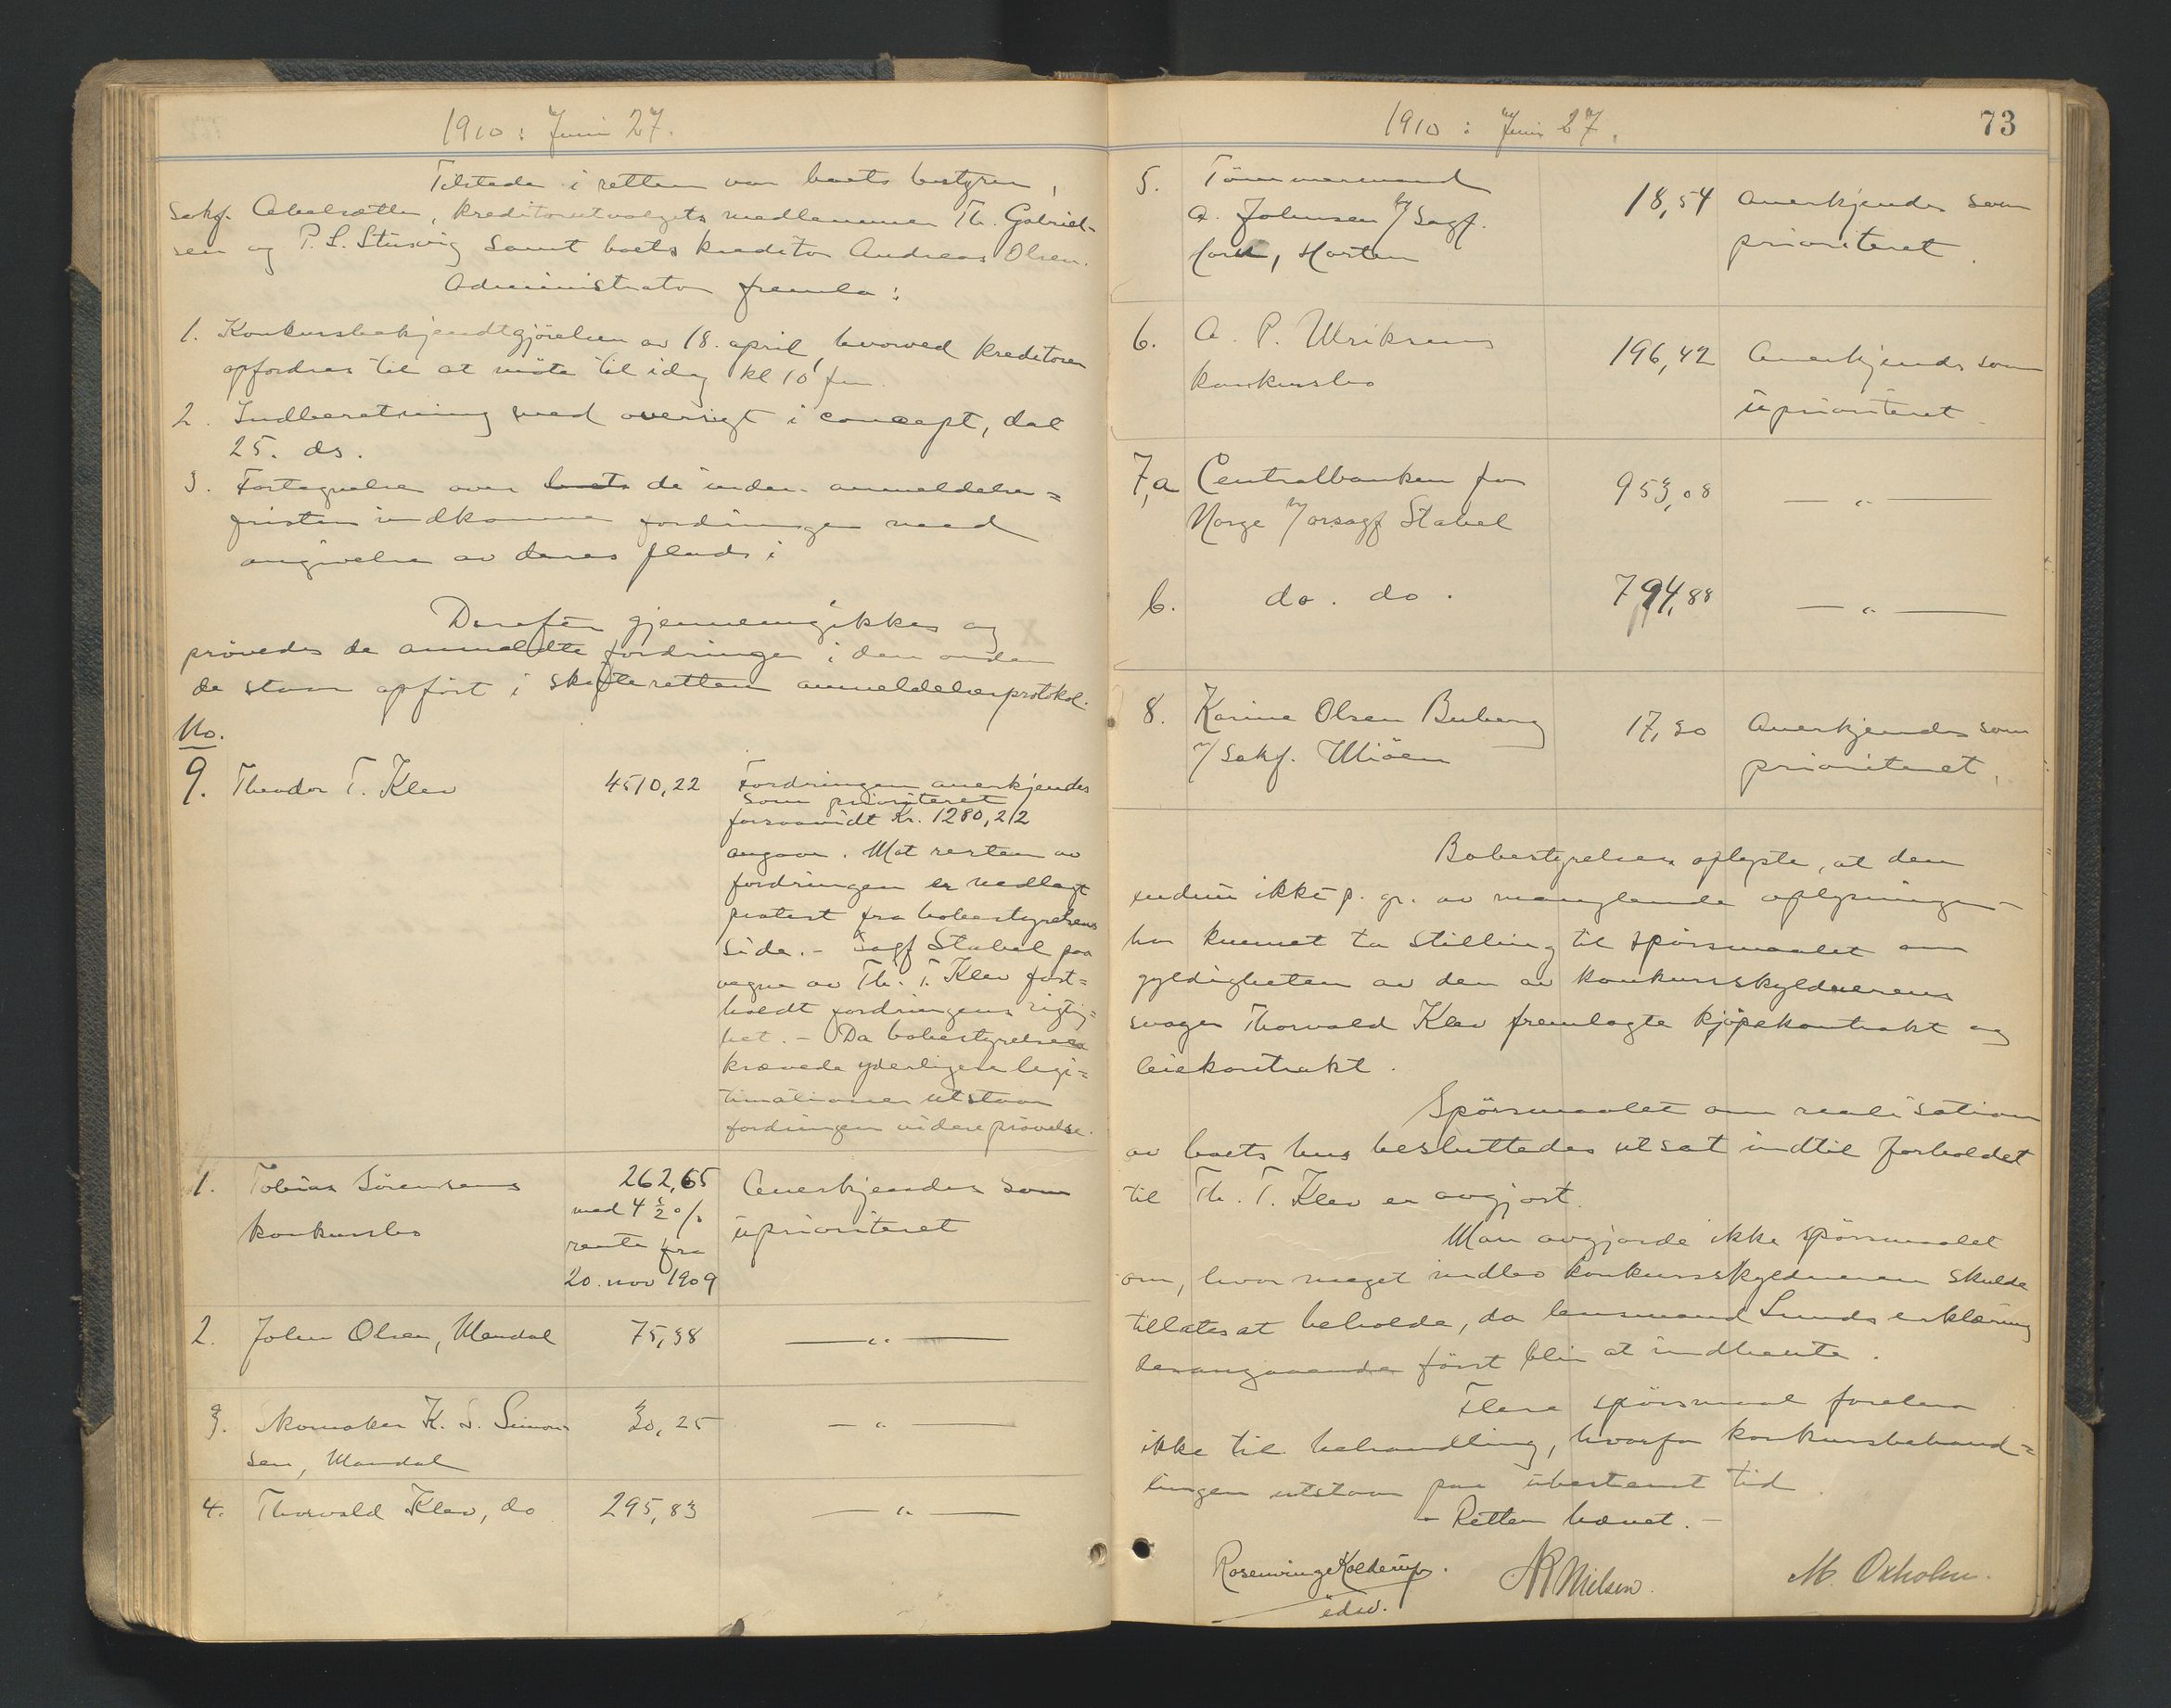 1910: Juni 27.
Tilstede i retten var boets bestyrer,
sakf. Abelsætter, kreditorutvalgets medlemmer Th. Gabriel-
sen og P. L. Stusvig samt boets kreditor Andreas Olsen.
Administrator fremla:
1. Konkursbekjendtgjörelsen av 18. april, hvorved kreditorer
opfordres til at möte til idag kl 10 fm.
2. Indberetning med oversigt i concept, dat
25. ds.
3. Fortegnelse over boets de inden anmeldelses=
fristen indkomne fordringer med
angivelse av deres plads i
Derefter gjennemgikkes og
prövedes de anmeldte fordringer i den orden
de staar opfört i skifteretten anmeldelsesprotokol.
No.
9. Theodor T. Klev 4510,22 Fordringen anerkjendes
som prioriteret
forsaavidt Kr. 1280,22
angaar. Mot resten av
fordringen er nedlagt
protest fra bobestyrelsens
side. - Sagf Stabel paa
vegne av Th. T. Klev fast=
holdt fordringens rigtig=
het. - Da bobestyrelsen
krævede yderligere legi=
timationer utstaar
fordringen videre prövelse.
1. Tobias Sörensens 262,65 Anerkjendes som
konkursbo med 4 1/2 % uprioriteret
rente fra
20. nov 1909
2. John Olsen, Mandal 75,38 — " —
3. Skomaker K. S. Simon- 30,25 — " —
sen, Mandal
4. Thorvald Klev, do 295,83 — " —
1910: Juni 27.
73
5. Tömmermand 18,54 Anerkjendes som
A. Johnsen v/ Sagf. prioriteret.
Horten
6. A. P. Ulriksens 196,42 Anerkjendes som
konkursbo uprioriteret.
7,a Centralbanken for 953,08 — " —
Norge v/ orsagf Stabel
b. do. do. 794,88 — " —
8. Karine Olsen Buberg 17,50 Anerkjendes som
v/ Sakf. Miöen prioriteret.
Bobestyrelsen oplyste, at den
endnu ikke p. gr. av manglende oplysninger
har kunnet ta stilling til spörsmaalet om
gyldigheten av den av konkursskyldnerens
svoger Thorvald Klev fremlagte kjöpekontrakt og
leiekontrakt.
Spörsmaalet om realisation
av boets hus besluttedes utsat indtil forholdet
til Th. T. Klev er avgjort.
Man avgjorde ikke spörsmaalet
om, hvor meget indbo konkursskyldneren skulde
tillates at beholde, da lensmand Lunds erklæring
desangaaende först blir at indhente.
Flere spörsmaal forelaa
ikke til behandling, hvorfor konkursbehand=
lingen utstaar paa ubestemt tid.
- Retten hævet. -
Rosenvinge Kolderup. NR Nilsen. M. Oxholm.
edsv.